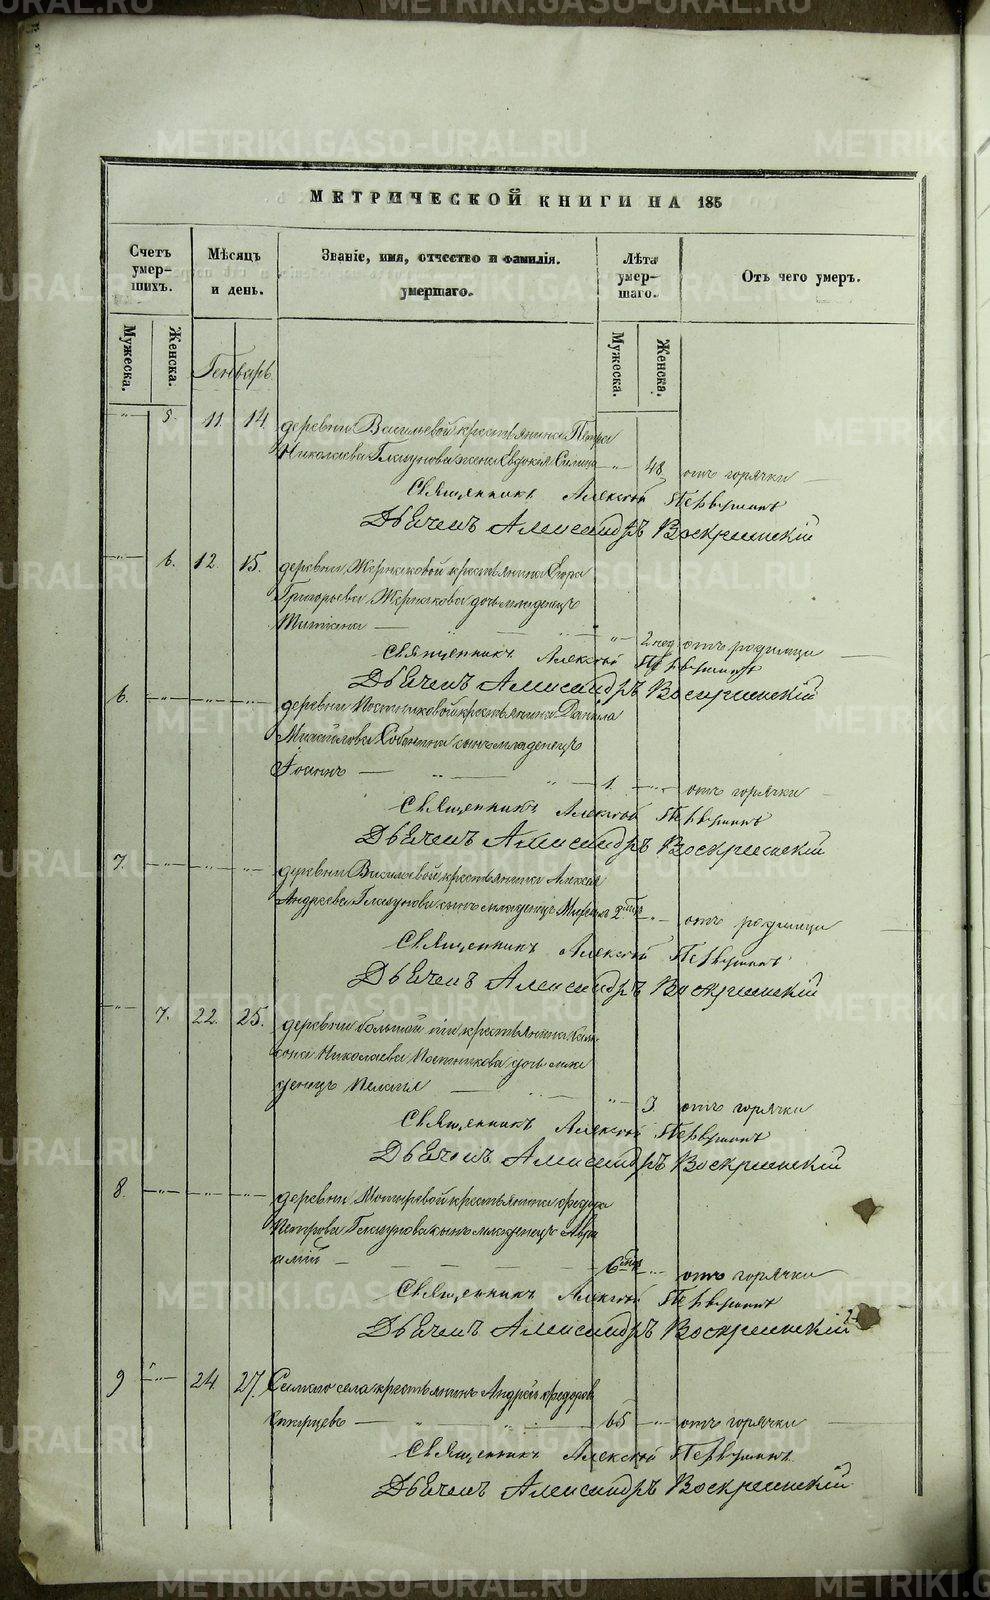 МЕТРИЧЕСКОЙ КНИГИ НА 185
Счетъ умер-шихъ.
Мѣсяцъ и день.
Званіе, имя, отчество и фамилія. умершаго.
Лѣта умер-шаго.
Отъ чего умеръ.
Мужеска. Женска. Мужеска. Женска.
Генварь.
5. 11. 14. деревни Васильевой крестьянина Петра
Николаева Глазунова жена Евдокия 48 отъ горячки
Священникъ Алексѣй Первушинъ
Дьячекъ Александръ Воскресенскій
6. 12. 15. деревни крестьянина
Григорьева дочь младенецъ
2 нед отъ родимца
Священникъ Алексѣй Первушинъ
Дьячекъ Александръ Воскресенскій
6. деревни крестьянина Данила
Михайлова сынъ младенецъ
Іоаннъ 1. отъ горячки
Священникъ Алексѣй Первушинъ
Дьячекъ Александръ Воскресенскій
7. деревни Васильевой крестьянина Алексея
Андреева Глазунова сынъ младенецъ 2 мѣс отъ родимца
Священникъ Алексѣй Первушинъ
Дьячекъ Александръ Воскресенскій
7. 22. 25. деревни большой крестьянина
Николаева Постникова дочь мла
денецъ Пелагія 3 отъ горячки
Священникъ Алексѣй Первушинъ
Дьячекъ Александръ Воскресенскій
8. деревни крестьянина Федора
Петрова Глазунова сынъ младенецъ Авра
амій 6 мѣс отъ горячки
Священникъ Алексѣй Первушинъ
Дьячекъ Александръ Воскресенскій
9 24. 27. села крестьянинъ Андрей Федоровъ
65 отъ горячки
Священникъ Алексѣй Первушинъ
Дьячекъ Александръ Воскресенскій
METRIKI.GASO-URAL.RU